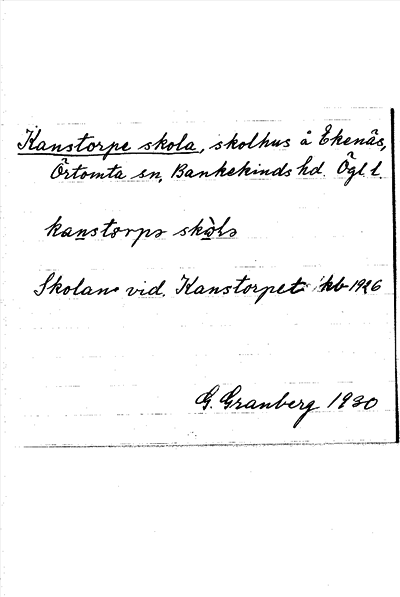 Kanstorpe skola, skolhus å Ekenäs,
Örtomta sn, Bankekinds hd. Ögl l.
kanstɷrpə skɷ̀lə
Skolan vid Kanstorpet kb 1926
G. Granberg 1930